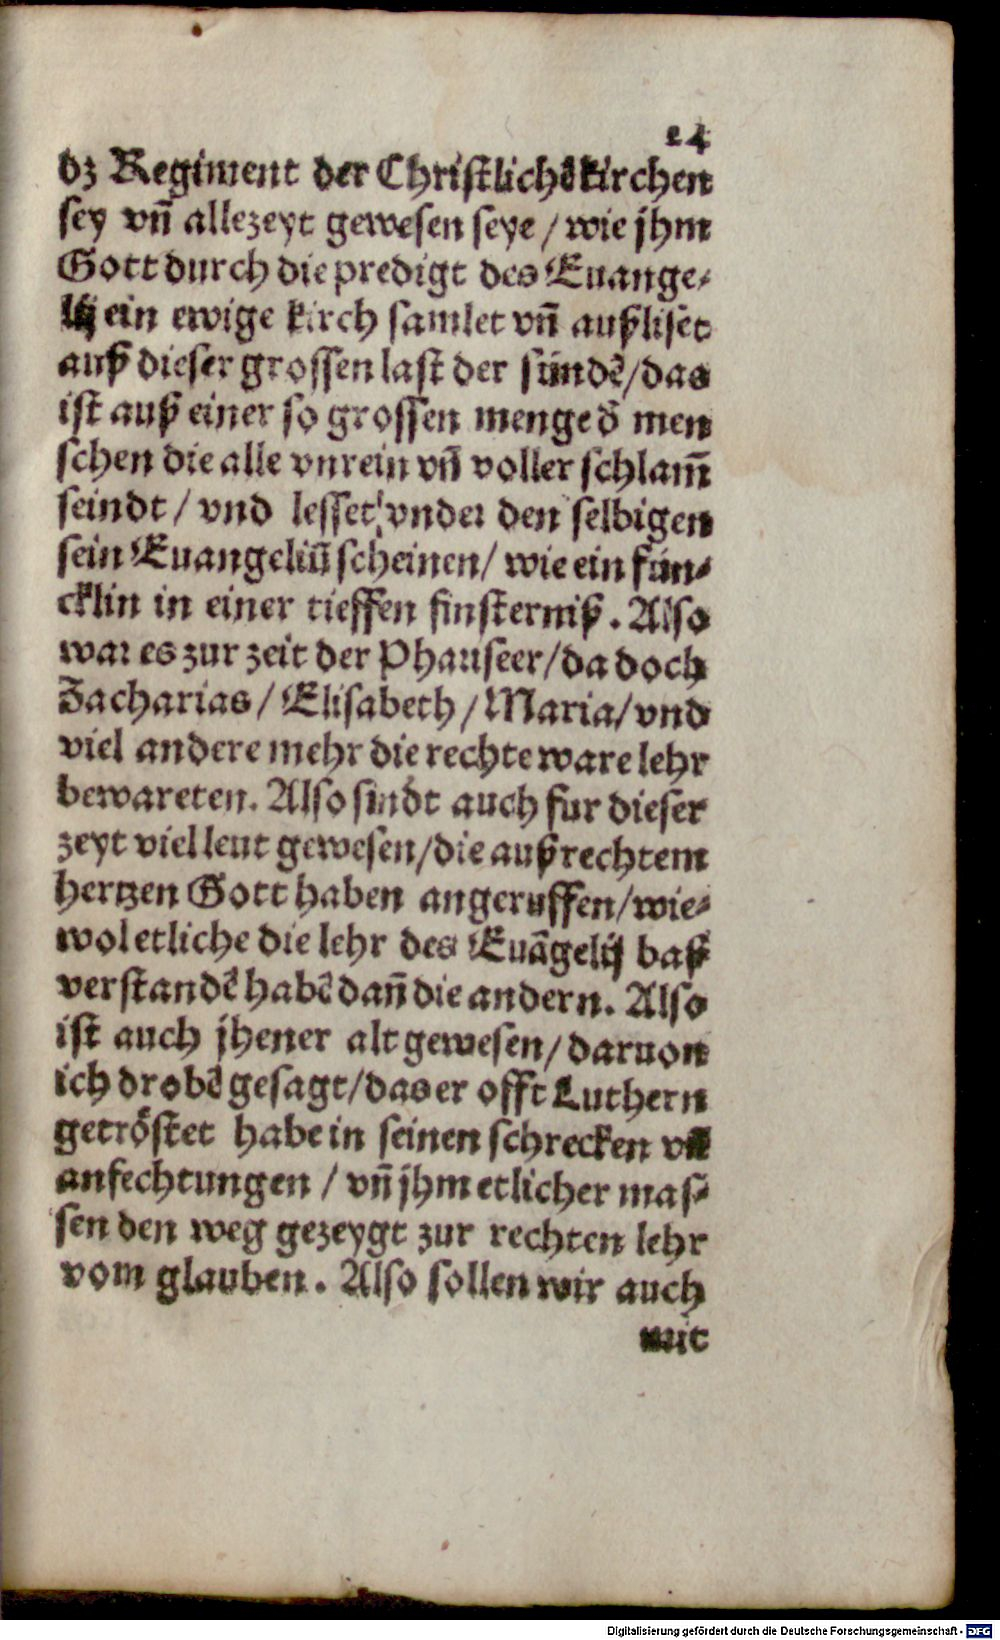 24
dz Regiment der Christlichē kirchen
sey vn̄ allezeyt gewesen seye / wie jhm
Gott durch die predigt des Euange-
lij ein ewige kirch samlet vn̄ außliset
auß dieser grossen last der sündē / das
ist auß einer so grossen menge d̄ men
schen die alle vnrein vn̄ voller schlam̄
seindt / vnd lesset vnder den selbigen
sein Euangeliū scheinen / wie ein fün-
cklin in einer tieffen finsterniß. Also
war es zur zeit der Phariseer / da doch
Zacharias / Elisabeth / Maria / vnd
viel andere mehr die rechte ware lehr
bewareten. Also sindt auch fur dieser
zeyt viel leut gewesen / die auß rechtem
hertzen Gott haben angeruffen / wie-
wol etliche die lehr des Euāgelij baß
verstandē habē dan̄ die andern. Also
ist auch jhener alt gewesen / daruon
ich drobē gesagt / das er offt Luthern
getröstet habe in seinen schrecken vn̄
anfechtungen / vn̄ jhm etlicher mas-
sen den weg gezeygt zur rechten lehr
vom glauben. Also sollen wir auch
mit
Digitalisierung gefördert durch die Deutsche Forschungsgemeinschaft - DFG